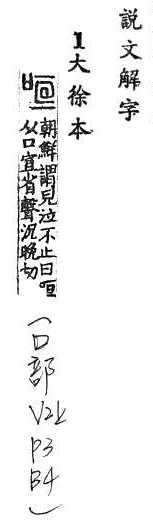 說文解字
1大徐本
咺
朝鮮謂兒泣不止曰咺
从口宣省聲況晚切
(口部 V2上 P3 B4)